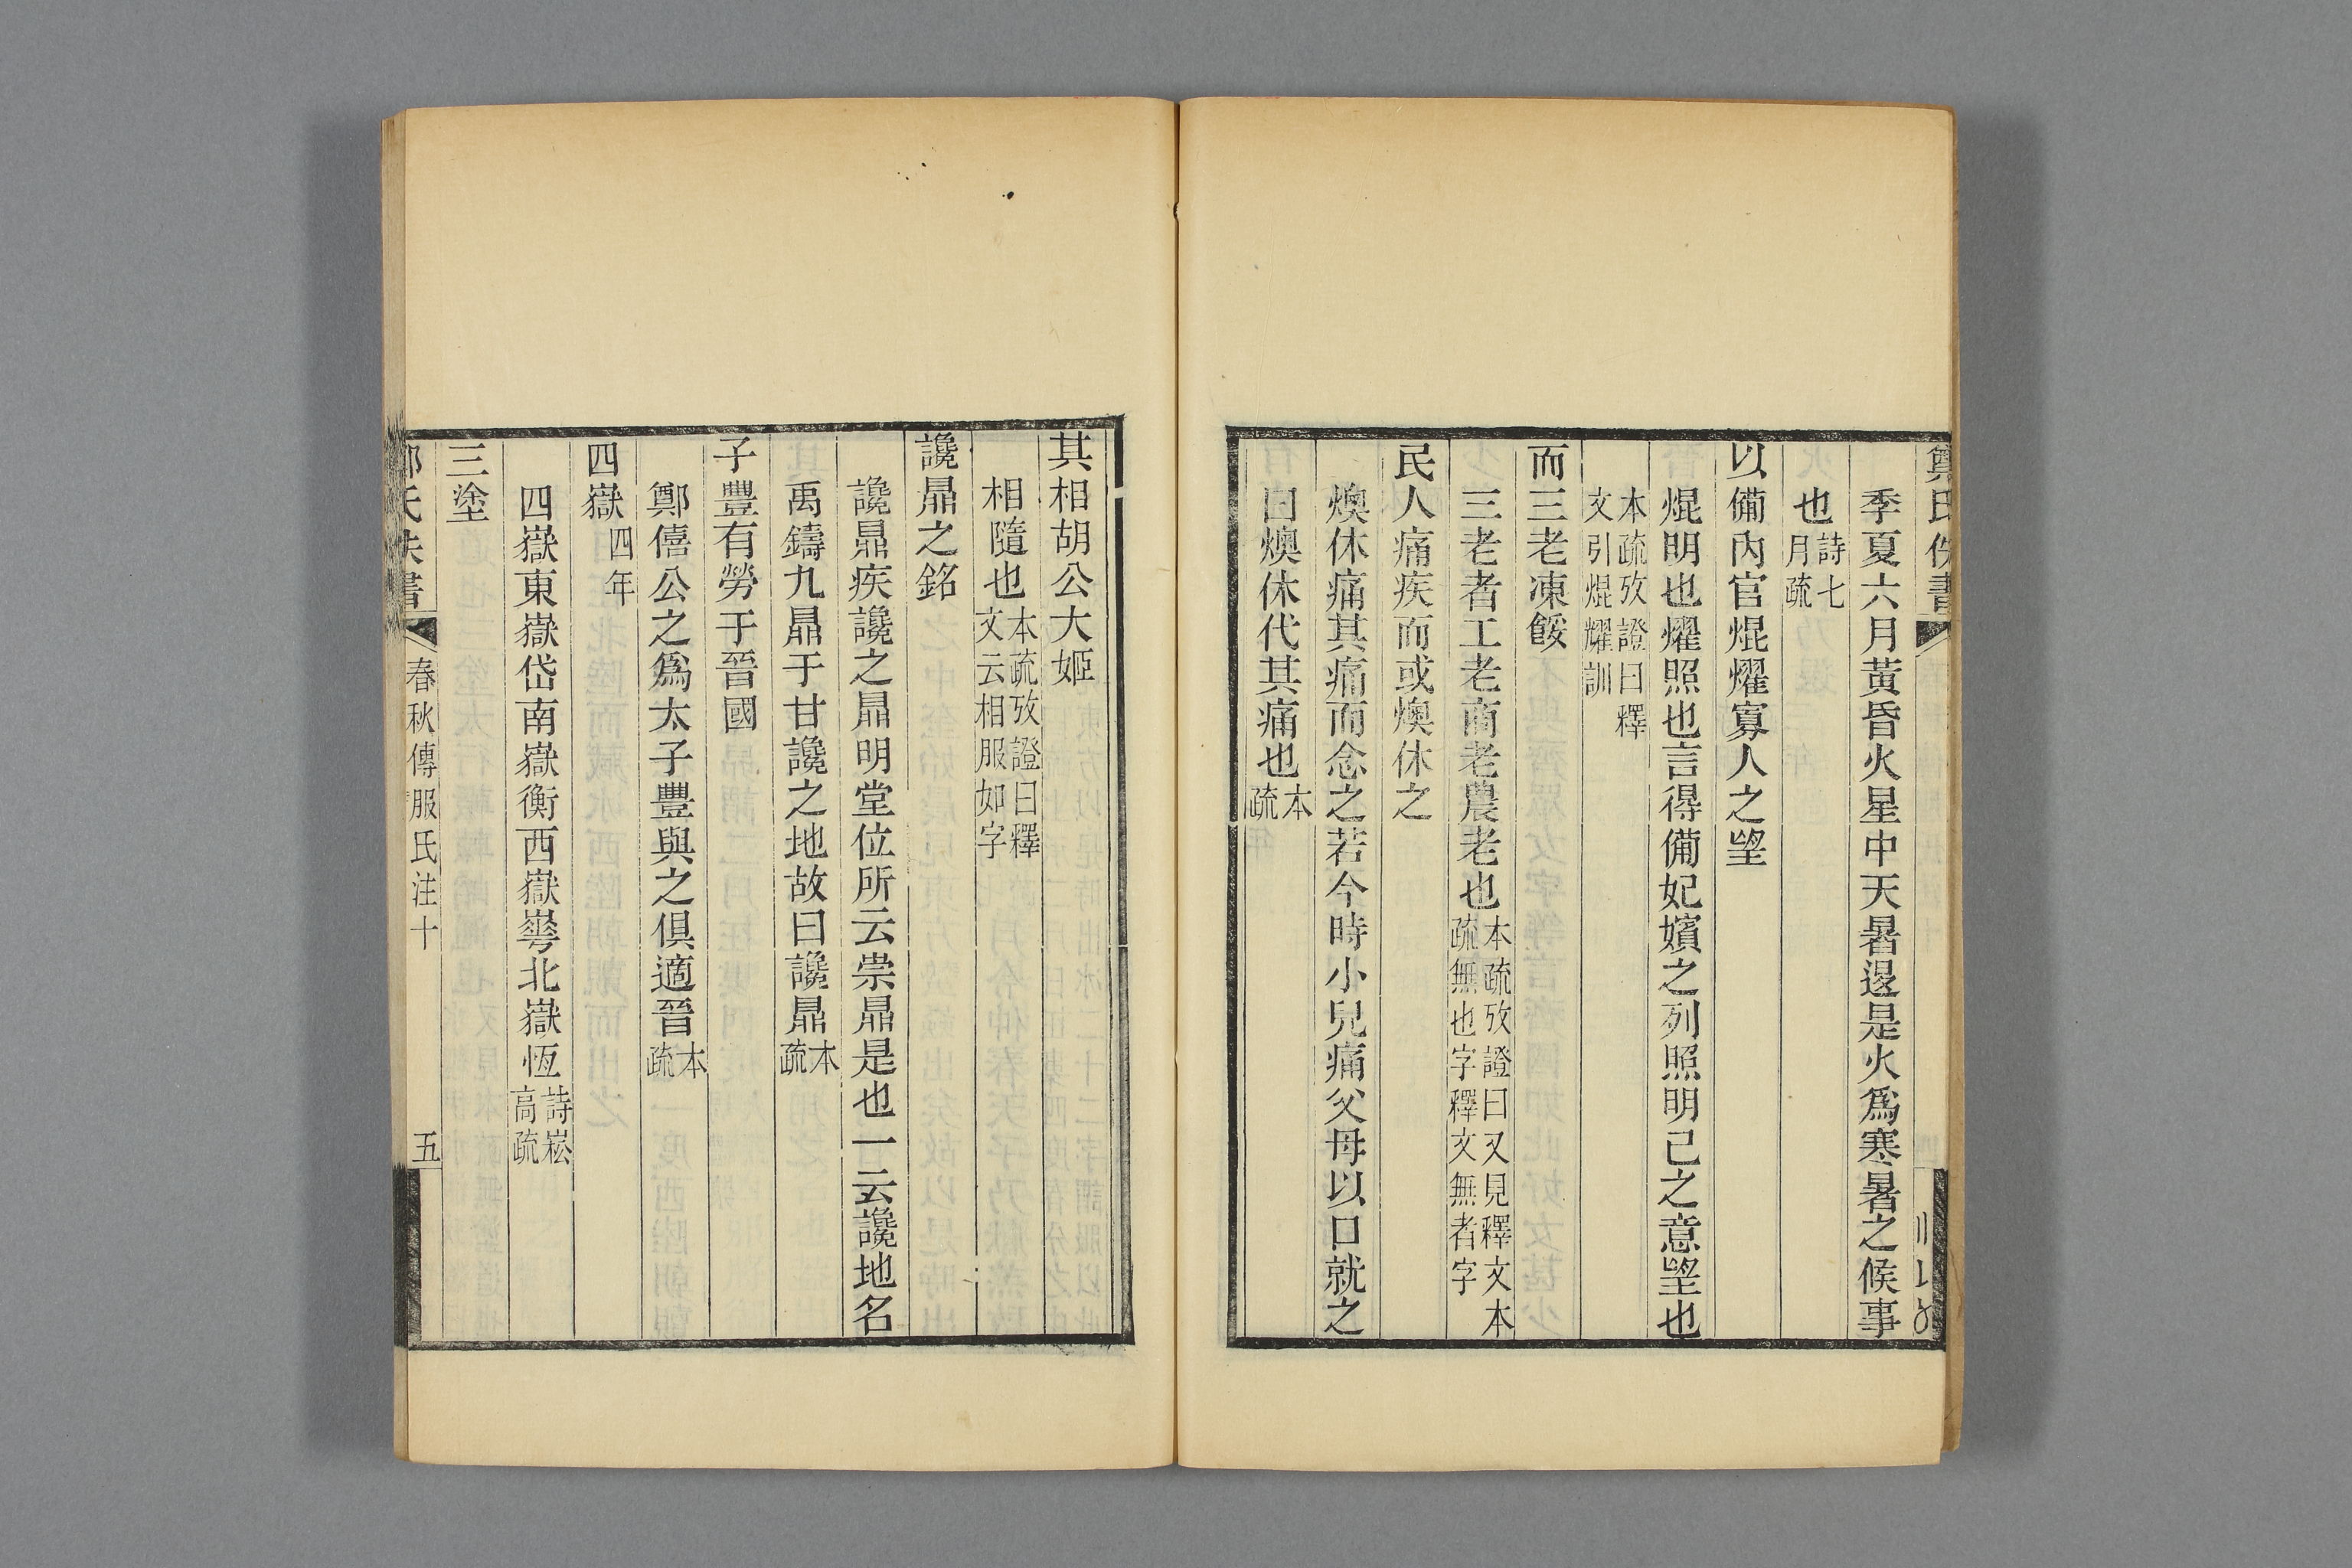 鄭氏佚書
季夏六月黃昏火星中天暑退是火爲寒暑之候事
也詩七月疏
以備內官焜燿寡人之望
焜明也燿照也言得備妃嬪之列照明己之意望也
本疏攷證曰釋文引焜耀訓
而三老凍餒
三老者工老商老農老也本疏攷證曰又見釋文本疏無也字釋文無者字
民人痛疾而或燠休之
燠休痛其痛而念之若今時小兒痛父母以口就之
曰燠休代其痛也本疏
其相胡公大姬
相隨也本疏攷證曰釋文云相服如字
讒鼎之銘
讒鼎疾讒之鼎明堂位所云崇鼎是也一云讒地名
禹鑄九鼎于甘讒之地故曰讒鼎本疏
子豐有勞于晉國
鄭僖公之爲太子豐與之俱適晉本疏
四嶽四年
四嶽東嶽岱南嶽衡西嶽崋北嶽恆詩崧高疏
三塗
氏佚書 春秋傳服氏注十 五